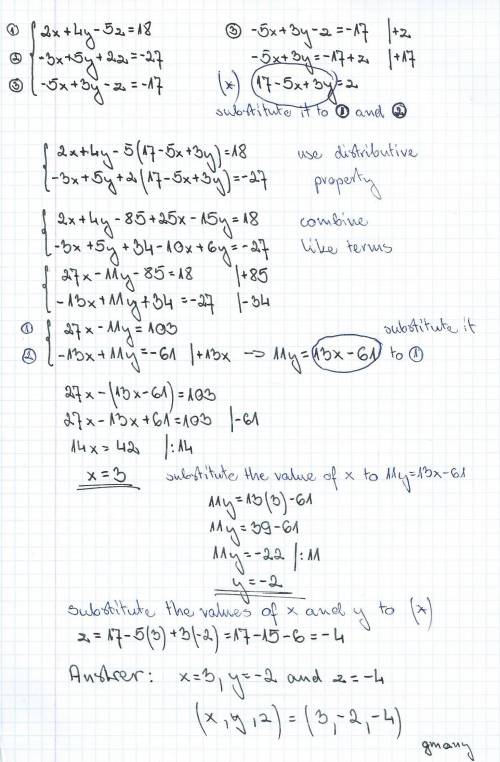 ① 2x+4y-5z=18 ③ -5x+3y-z=-17 |+z
② -3x+5y+2z=-27 -5x+3y=-17+z |+17
③ -5x+3y-z=-17 (*) 17-5x+3y=z
substitute it to ① and ②
2x+4y-5(17-5x+3y)=18 use distributive
-3x+5y+2(17-5x+3y)=-27 property
2x+4y-85+25x-15y=18 combine
-3x+5y+34-10x+6y=-27 like terms
27x-11y-85=18 |+85
-13x+11y+34=-27 |-34
① 27x-11y=103 substitute it
② -13x+11y=-61 |+13x → 11y=13x-61 to ①
27x-(13x-61)=103
27x-13x+61=103 |-61
14x=42 |:14
x=3 substitute the value of x to 11y=13x-61
11y=13(3)-61
11y=39-61
11y=-22 |:11
y=-2
substitute the values of x and y to (*)
z=17-5(3)+3(-2)=17-15-6=-4
Answer: x=3, y=-2 and z=-4
(x, y, z) = (3, -2, -4)
gmany